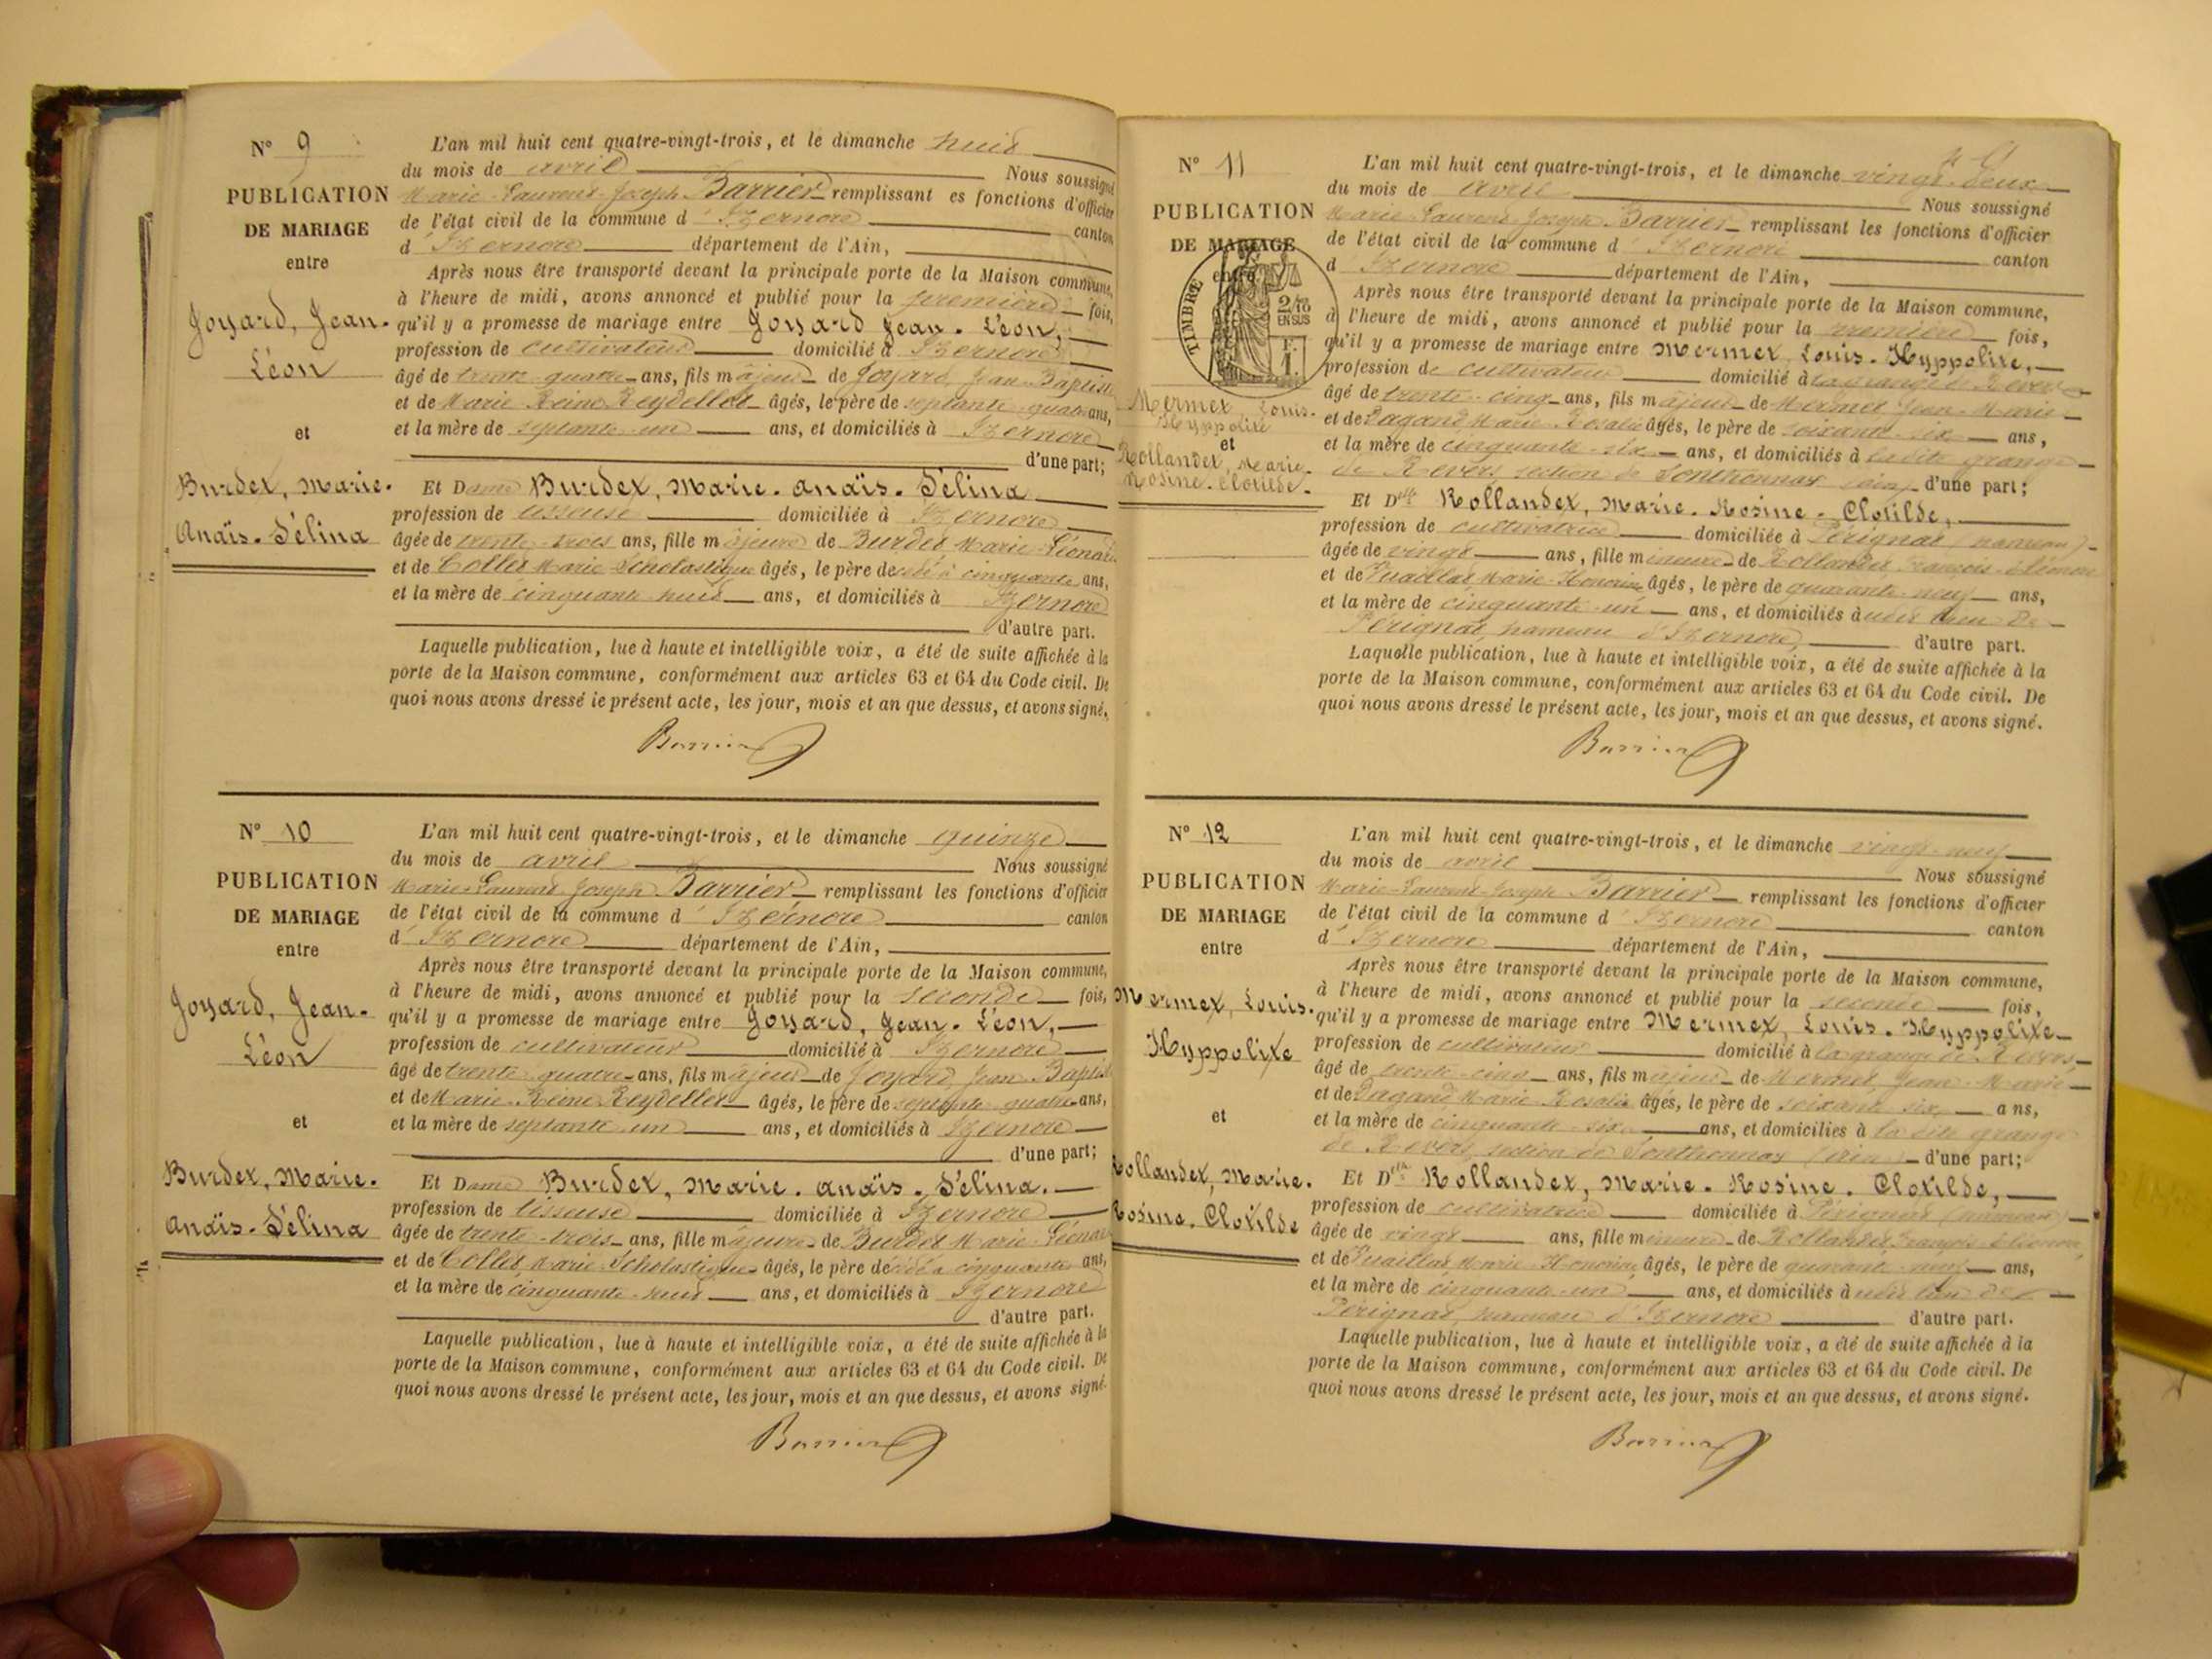 N° 9
PUBLICATION
DE MARIAGE
entre
Joyard, Jean-
Léon
et
Burdet, Marie-
Anaïs-Sélina
L'an mil huit cent quatre-vingt-trois, et le dimanche huit
du mois de avril Nous soussigné
Marie-Laurent-Joseph Barrier remplissant es fonctions d'officier
de l'état civil de la commune d'Izernore canton
d'Izernore département de l'Ain,
Après nous être transporté devant la principale porte de la Maison commune,
à l'heure de midi, avons annoncé et publié pour la première fois,
qu'il y a promesse de mariage entre Joyard Jean-Léon,
profession de cultivateur domicilié à Izernore
âgé de trente-quatre ans, fils majeur de Joyard, Jean-Baptiste
et de Marie Reine Reydellet âgés, le père de septante-quatre ans,
et la mère de septante-un ans, et domiciliés à Izernore
d'une part;
Et Dame Burdet, Marie-Anaïs-Sélina
profession de tisseuse domiciliée à Izernore
âgée de trente-trois ans, fille majeure de Burdet Marie-Léonard
et de Collet Marie Scholastique âgés, le père décédé à cinquante ans,
et la mère de cinquante-huit ans, et domiciliés à Izernore
d'autre part.
Laquelle publication, lue à haute et intelligible voix, a été de suite affichée à la
porte de la Maison commune, conformément aux articles 63 et 64 du Code civil. De
quoi nous avons dressé le présent acte, les jour, mois et an que dessus, et avons signé.
Barrier
N° 10
PUBLICATION
DE MARIAGE
entre
Joyard, Jean-
Léon
et
Burdet, Marie-
Anaïs-Sélina
L'an mil huit cent quatre-vingt-trois, et le dimanche quinze
du mois de avril Nous soussigné
Marie-Laurent-Joseph Barrier remplissant les fonctions d'officier
de l'état civil de la commune d'Izernore canton
d'Izernore département de l'Ain,
Après nous être transporté devant la principale porte de la Maison commune,
à l'heure de midi, avons annoncé et publié pour la seconde fois,
qu'il y a promesse de mariage entre Joyard, Jean-Léon,
profession de cultivateur domicilié à Izernore
âgé de trente-quatre ans, fils majeur de Joyard, Jean-Baptiste
et de Marie-Reine Reydellet âgés, le père de septante-quatre ans,
et la mère de septante-un ans, et domiciliés à Izernore
d'une part;
Et Dame Burdet, Marie-Anaïs-Sélina.
profession de tisseuse domiciliée à Izernore
âgée de trente-trois ans, fille majeure de Burdet Marie-Léonard
et de Collet, Marie Scholastique âgés, le père décédé à cinquante ans,
et la mère de cinquante-huit ans, et domiciliés à Izernore
d'autre part.
Laquelle publication, lue à haute et intelligible voix, a été de suite affichée à la
porte de la Maison commune, conformément aux articles 63 et 64 du Code civil. De
quoi nous avons dressé le présent acte, les jour, mois et an que dessus, et avons signé.
Barrier
N° 11
PUBLICATION
DE MARIAGE
entre
TIMBRE
2/10
EN SUS
F.
1.
Mermet, Louis-
Hyppolite
et
Rollandet, Marie-
Rosine-Clotilde-
L'an mil huit cent quatre-vingt-trois, et le dimanche vingt-deux
du mois de avril Nous soussigné
Marie-Laurent-Joseph Barrier remplissant les fonctions d'officier
de l'état civil de la commune d'Izernore canton
d'Izernore département de l'Ain,
Après nous être transporté devant la principale porte de la Maison commune,
à l'heure de midi, avons annoncé et publié pour la première fois,
qu'il y a promesse de mariage entre Mermet, Louis-Hyppolite,
profession de cultivateur domicilié à la grange de Revers
âgé de trente-cinq ans, fils majeur de Mermet Jean-Marie
et de Pagand Marie Rosalie âgés, le père de soixante-six ans,
et la mère de cinquante-six ans, et domiciliés à ladite grange
de Revers, section de Sonthonnax d'une part;
Et Dlle Rollandet, Marie-Rosine-Clotilde,
profession de cultivatrice domiciliée à Pérignat (hameau)
âgée de vingt ans, fille mineure de Rollandet, François-Eléonore
et de Puaillat Marie-Honorine âgés, le père de quarante-neuf ans,
et la mère de cinquante-un ans, et domiciliés à udit lieu de
Pérignat, hameau d'Izernore, d'autre part.
Laquelle publication, lue à haute et intelligible voix, a été de suite affichée à la
porte de la Maison commune, conformément aux articles 63 et 64 du Code civil. De
quoi nous avons dressé le présent acte, les jour, mois et an que dessus, et avons signé.
Barrier
N° 12
PUBLICATION
DE MARIAGE
entre
Mermet, Louis-
Hyppolite
et
Rollandet, Marie-
Rosine-Clotilde
L'an mil huit cent quatre-vingt-trois, et le dimanche vingt-neuf
du mois de avril Nous soussigné
Marie-Laurent-Joseph Barrier remplissant les fonctions d'officier
de l'état civil de la commune d'Izernore canton
d'Izernore département de l'Ain,
Après nous être transporté devant la principale porte de la Maison commune,
à l'heure de midi, avons annoncé et publié pour la seconde fois,
qu'il y a promesse de mariage entre Mermet, Louis-Hyppolite
profession de cultivateur domicilié à la grange de Revers,
âgé de trente-cinq ans, fils majeur de Mermet, Jean-Marie
et de Pagand Marie Rosalie âgés, le père de soixante-six ans,
et la mère de cinquante-six ans, et domiciliés à la dite grange
de Revers, section de Sonthonnax d'une part;
Et Dlle Rollandet, Marie-Rosine-Clotilde,
profession de cultivatrice domiciliée à Pérignat (hameau)
âgée de vingt ans, fille mineure de Rollandet, François-Eléonore
et de Puaillat Marie-Honorine âgés, le père de quarante-neuf ans,
et la mère de cinquante-un ans, et domiciliés à udit lieu de
Pérignat, hameau d'Izernore d'autre part.
Laquelle publication, lue à haute et intelligible voix, a été de suite affichée à la
porte de la Maison commune, conformément aux articles 63 et 64 du Code civil. De
quoi nous avons dressé le présent acte, les jour, mois et an que dessus, et avons signé.
Barrier